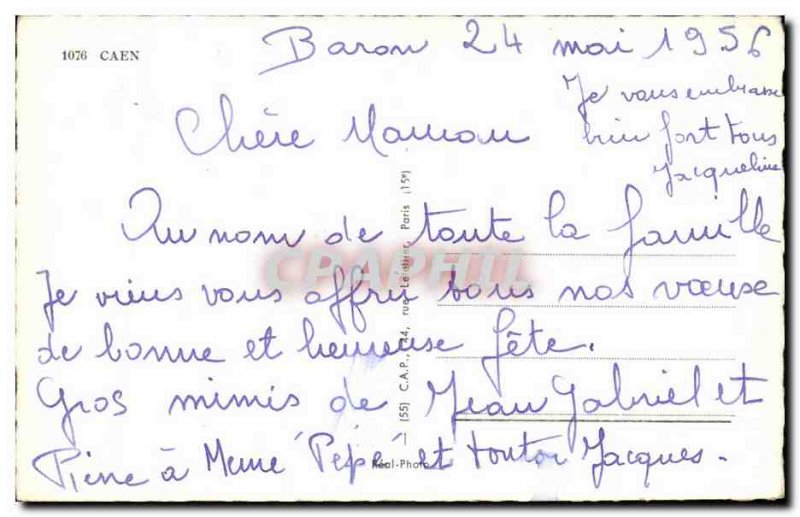 1076 CAEN
Baron 24 mai 1956
Je vous embrasse
bien fort tous
Jacqueline
Chère Maman
Au nom de toute la famille
Je viens vous offrir tous nos vœuse
de bonne et heureuse fête.
Gros mimis de Jean Gabriel et
Pierre à Meme Pépé et tonton Jacques.
CPAPHIL
(55) C.A.P., 44, rue Paris (15e)
Réal-Photo